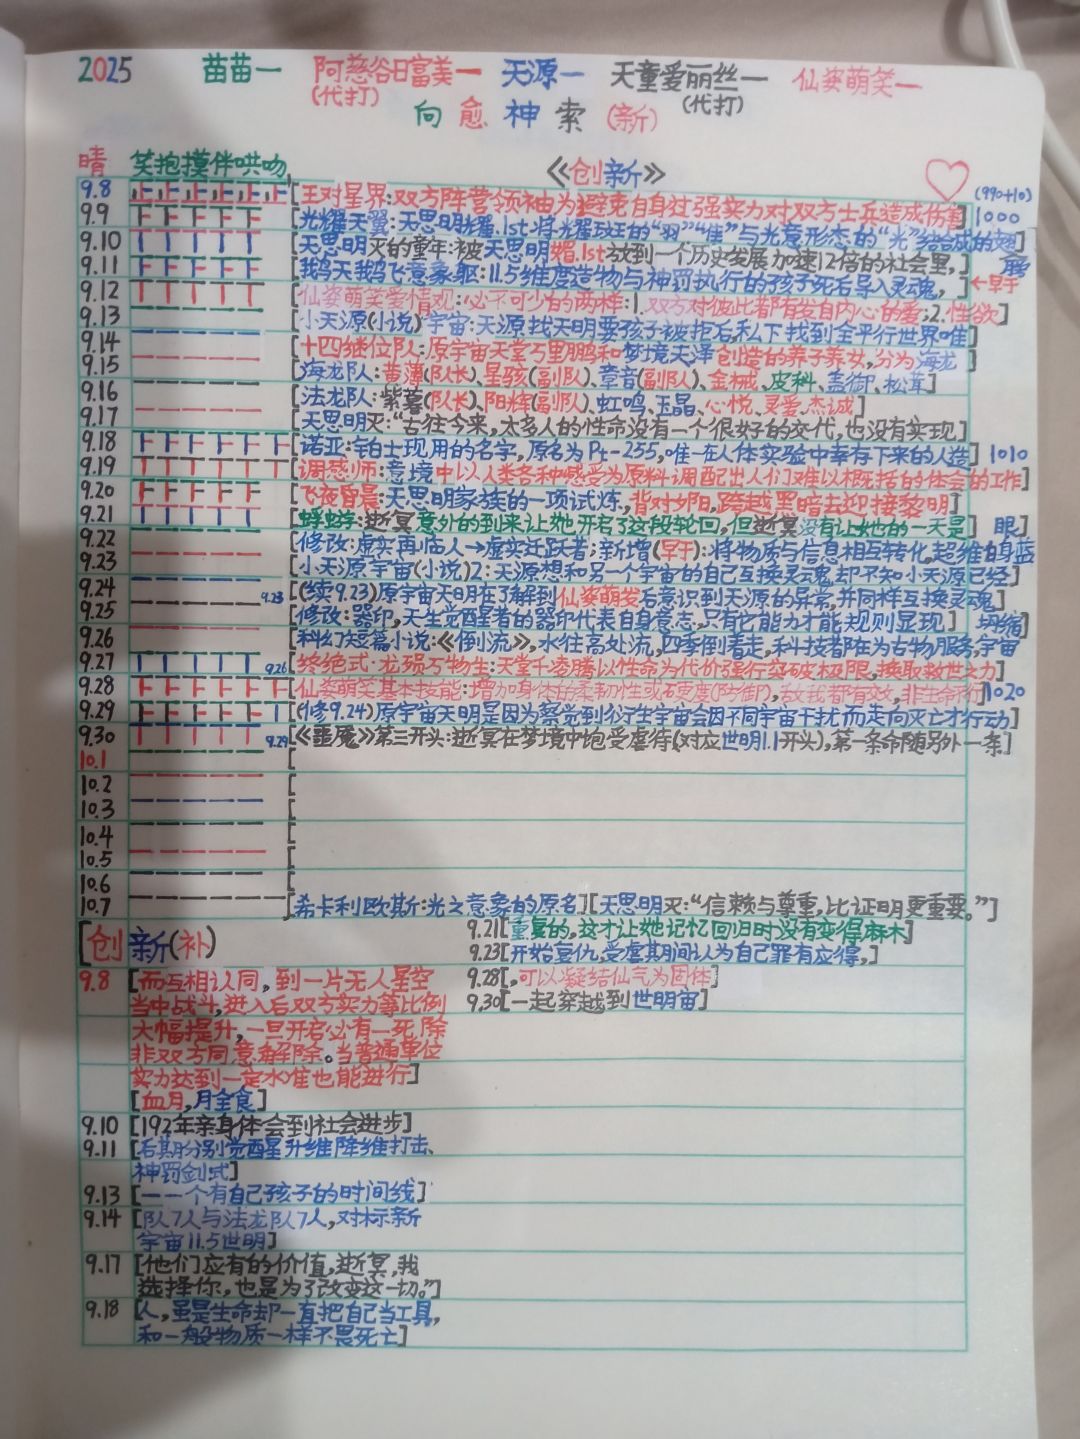 2025 苗苗一 阿慈谷日富美一 天源一 天童爱丽丝一 仙姿萌笑一
(代打) (代打)
向愈神索(新)
晴 笑抱摸伴哄吻 《创新》
(990+10)
9.8 止止止止止止 [王对星界:双方阵营领袖为避免自身过强实力对双方士兵造成伤害] 1000
9.9 [光耀天翼:天思明耀.1st将光耀斑的“羽”“堆”与光意形态的“光”结合成的翅]
9.10 [天思明灭的童年:被天思明媚.1st放到一个历史发展加速12倍的社会里,]
9.11 [我鸟天鹅飞意象躯:11.5维度造物与神罚执行的孩子死后导入灵魂,] ←早于
9.12 [仙姿萌笑爱情观:必不可少的两样:1.双方对彼此都有发自内心的爱;2.性欲]
9.13 [小天源(小说)宇宙:天源找天明要孩子被拒后私下找到全平行世界唯]
9.14 [十四继位队:原宇宙天堂万里鹏和梦境天泽创造的养子养女,分为海龙]
9.15 [海龙队:黄薄(队长)、星骇(副队)、章音(副队)、金械、皮科、盖御、松茸]
9.16 [法龙队:紫暮(队长)、阳辉(副队)、虹鸣、玉晶、心悦、灵爱、杰诚]
9.17 [天思明灭:“古往今来,太多人的性命没有一个很好的交代,也没有实现]
9.18 [诺亚:铂士现用的名字,原名为Pt-255,唯一在人体实验中幸存下来的人造] 1010
9.19 [调感师:意境中以人类各种感受为原料调配出人们难以概括的体会的工作]
9.20 [飞夜宵晨:天思明家族的一项试炼,背对夕阳,跨越黑暗去迎接黎明]
9.21 [蜉蝣:逝冥意外的到来让她开启了这段轮回,但逝冥没有让她的一天是] 眼
9.22 [修改:虚实再临人→虚实迁跃者;新增(早于):将物质与信息相互转化,超维自身蓝
9.23 [小天源宇宙(小说)2:天源想和另一个宇宙的自己互换灵魂却不知小天源已经]
9.24 9.23 [(续9.23)原宇宙天明在了解到仙姿萌发后意识到天源的异常,并同样互换灵魂]
9.25 [修改:器印,天生觉醒者的器印代表自身意志,只有它能力才能规则显现] 坍缩
9.26 [科幻短篇小说:《倒流》,水往高处流,四季倒着走,科技都在为古物服务,宇宙
9.27 9.26 [终绝式·龙殒万物生:天堂千凌腾以性命为代价强行突破极限,换取救世之力]
9.28 [仙姿萌笑基本技能:增加身体的柔韧性或硬度(防御),敌我都有效,非生命不行] 1020
9.29 [(修9.24)原宇宙天明是因为察觉到衍生宇宙会因不同宇宙干扰而走向灭亡才行动]
9.30 9.29 [《噩魇》第三开头:逝冥在梦境中饱受虐待(对应世明1.1开头),第一条命随另外一条]
10.1 [
10.2 [
10.3 [
10.4 [
10.5 [
10.6 [
10.7 [希卡利欧斯:光之意象的原名][天思明灭:“信赖与尊重,比证明更重要。”]
[创新(补) 9.21[重复的,这才让她记忆回归时没有变得麻木]
9.23[开始复仇,受虐其期间认为自己罪有应得,]
9.8 [而互相认同,到一片无人星空 9.28[,可以凝结仙气为固体]
当中战斗,进入后双方实力等比例 9.30[一起穿越到世明宙]
大幅提升,一旦开启必有一死,除
非双方同意解除。当普通单位
实力达到一定水准也能进行]
[血月,月全食]
9.10 [192年亲身体会到社会进步]
9.11 [后期分别觉醒星升维降维打击、
神罚剑式]
9.13 [一一个有自己孩子的时间线]
9.14 [队7人与法龙队7人,对标新
宇宙11.5世明]
9.17 [他们应有的价值,逝冥,我
选择你,也是为了改变这一切。”]
9.18 [人,虽是生命却一直把自己当工具,
和一般物质一样不畏死亡]